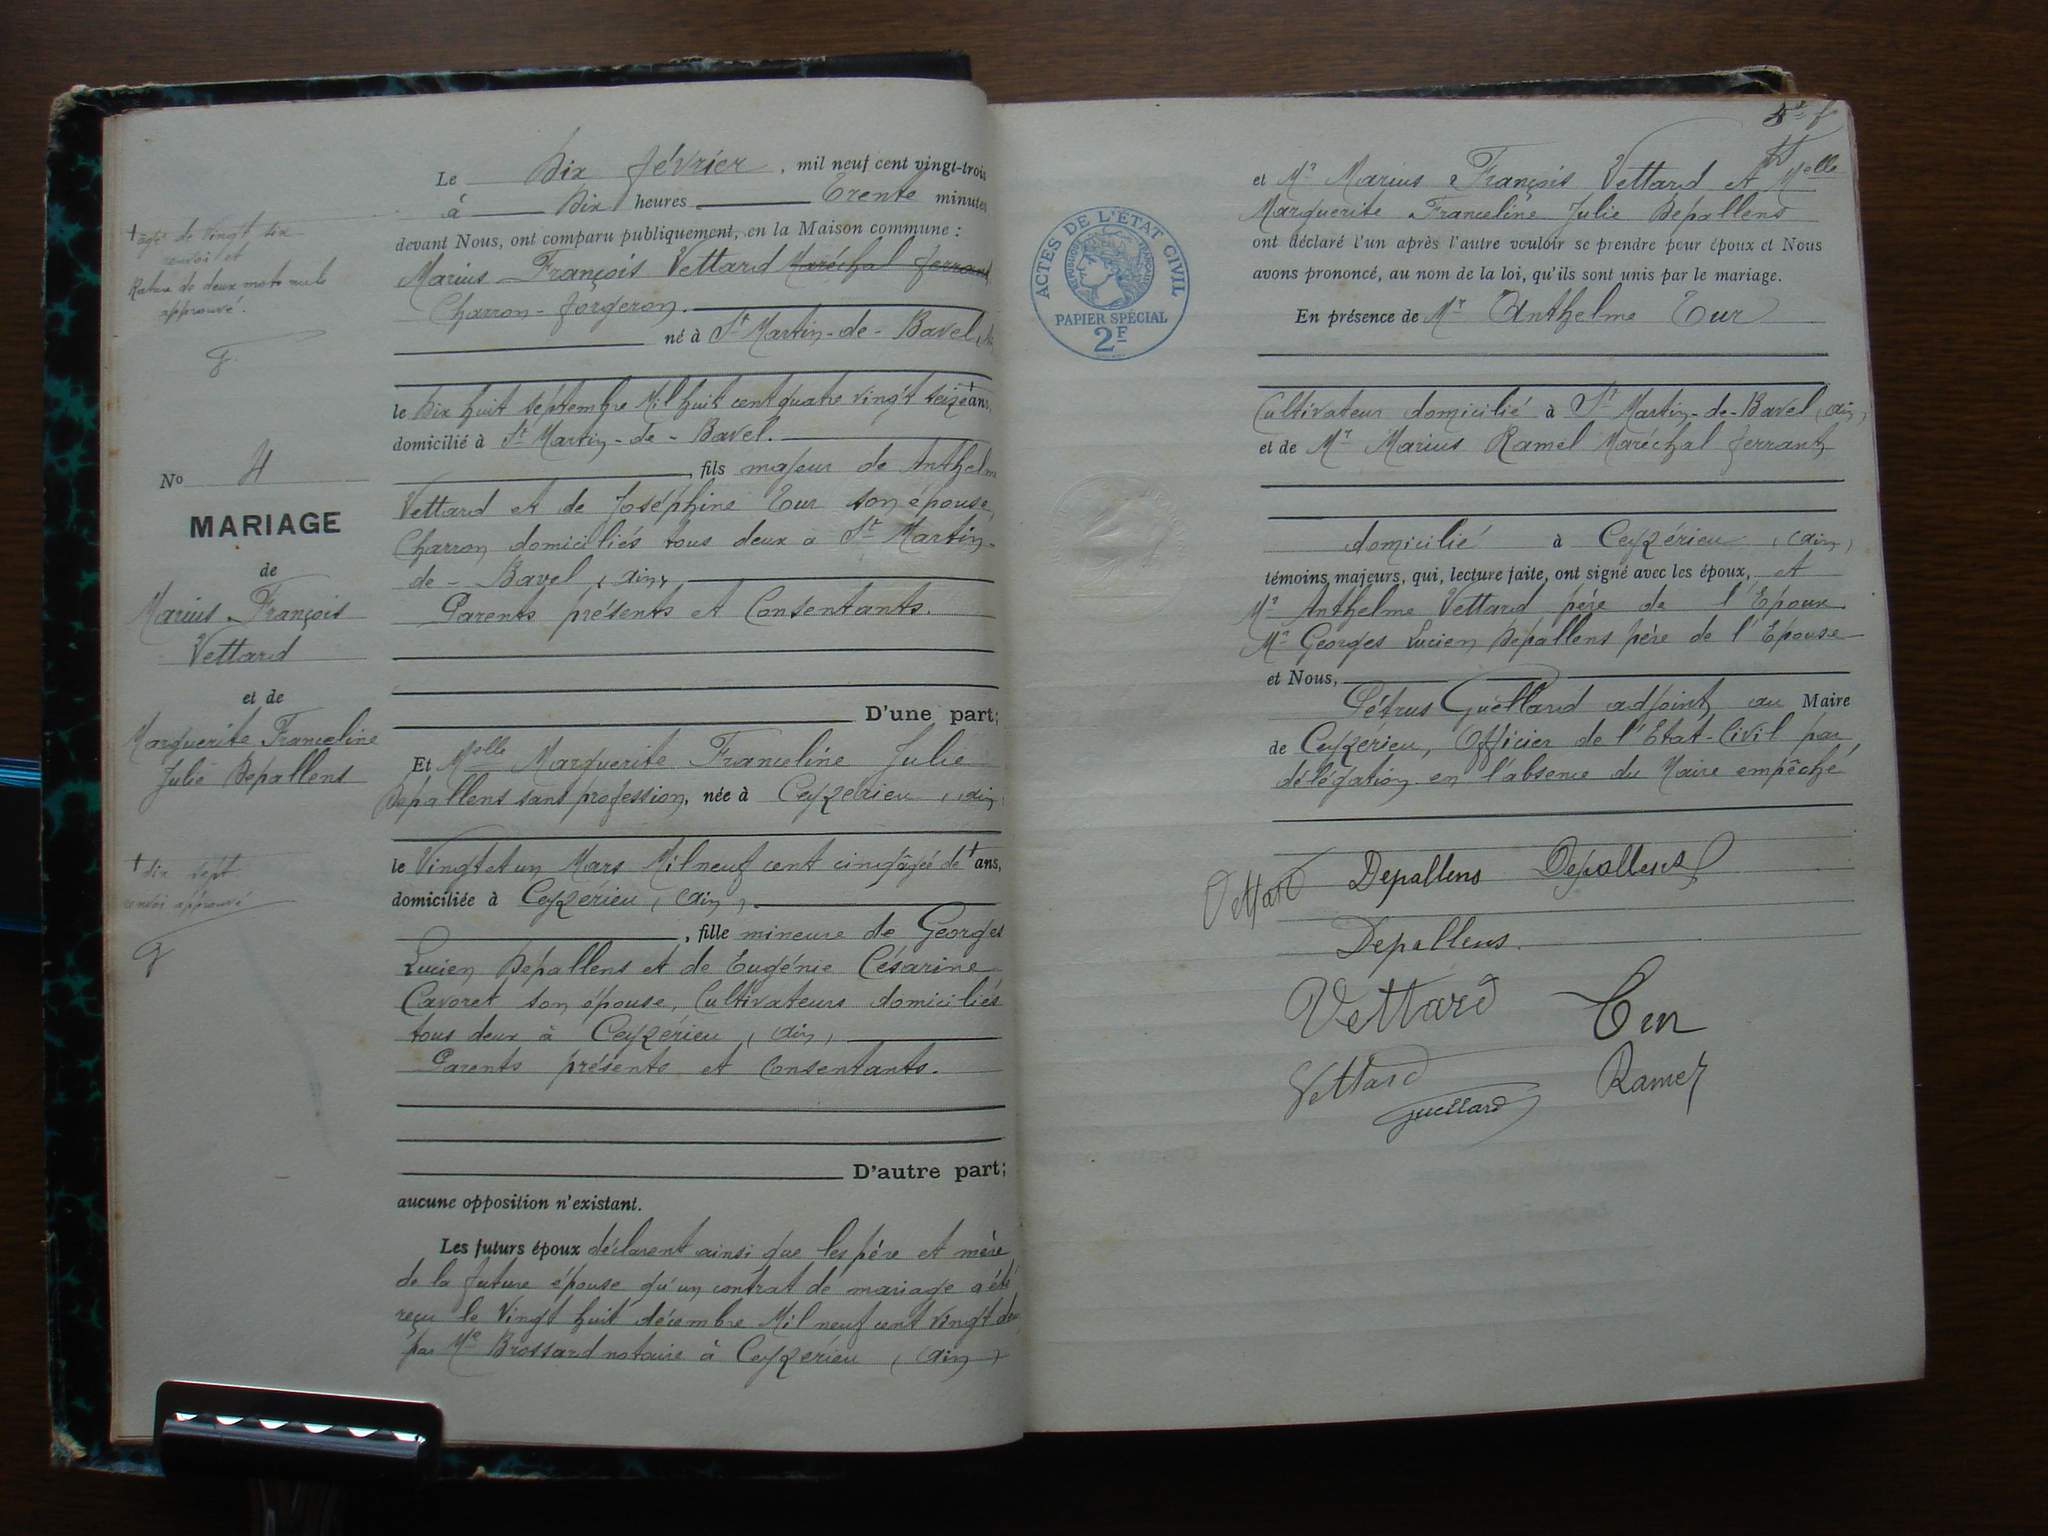 Le Dix février, mil neuf cent vingt-trois
à Dix heures Trente minutes
devant Nous, ont comparu publiquement, en la Maison commune :
Marius François Vettard Maréchal ferrant
Charron-forgeron.
né à St Martin-de-Bavel
le Dix huit septembre Mil huit cent quatre vingt seize + ans,
domicilié à St Martin-de-Bavel.
, fils majeur de Anthelme
Vettard et de Joséphine Tur son épouse,
Charron domiciliés tous deux a St Martin-
de-Bavel (Ain)
Parents présents et Consentants.
D'une part;
Et Melle Marguerite Franceline Julie
Depallens sans profession, née à Ceyzérieu (Ain)
le Vingt et un Mars Mil neuf cent cinq âgée de + ans,
domiciliée à Ceyzérieu (Ain),
, fille mineure de Georges
Lucien Depallens et de Eugénie Césarine
Cavoret son épouse, Cultivateurs domiciliés
tous deux à Ceyzérieu (Ain)
Parents présents et Consentants.
D'autre part;
aucune opposition n'existant.
Les futurs époux déclarent ainsi que les père et mère
de la future épouse qu'un contrat de mariage a été
reçu le Vingt huit décembre Mil neuf cent vingt deux
par Me Brossard notaire à Ceyzérieu (Ain)
+ âgé de vingt six
renvoi et
Rature de deux mots nuls
approuvé.
No 4
MARIAGE
de
Marius François
Vettard
et de
Marguerite Franceline
Julie Depallens
+ dix sept
renvoi approuvé
ACTES DE L'ÉTAT CIVIL
RÉPUBLIQUE FRANÇAISE
PAPIER SPÉCIAL
2F
et Mr Marius François Vettard et Melle
Marguerite Franceline Julie Depallens
ont déclaré l'un après l'autre vouloir se prendre pour époux et Nous
avons prononcé, au nom de la loi, qu'ils sont unis par le mariage.
En présence de Mr Anthelme Tur
Cultivateur domicilié à St Martin-de-Bavel (Ain)
et de Mr Marius Ramel Maréchal ferrant
domicilié à Ceyzérieu (Ain)
témoins majeurs, qui, lecture faite, ont signé avec les époux, et
Mr Anthelme Vettard père de l'Epoux.
Mr Georges Lucien Depallens père de l'Epouse
et Nous,
Pétrus Guettard adjoint au Maire
de Ceyzérieu, Officier de l'Etat-Civil par
délégation en l'absence du Maire empêché
Vettard Depallens Depallens
Depallens.
Vettard Tur
Vettard Ramel
Guettard